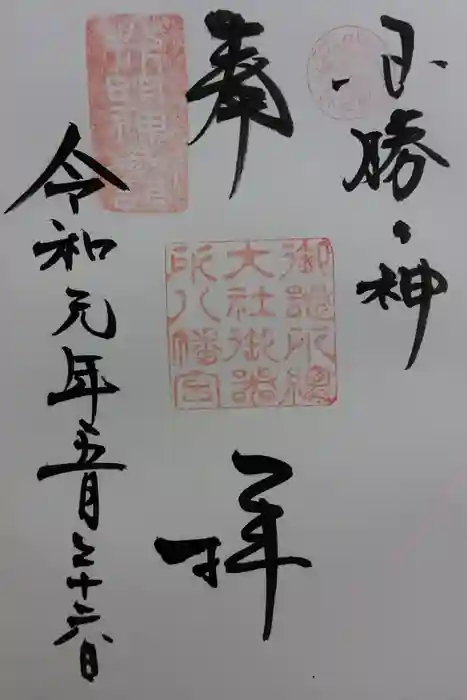 必勝の神
奉拝
御器所總
大社御器
所八幡宮
令和元年五月二十六日